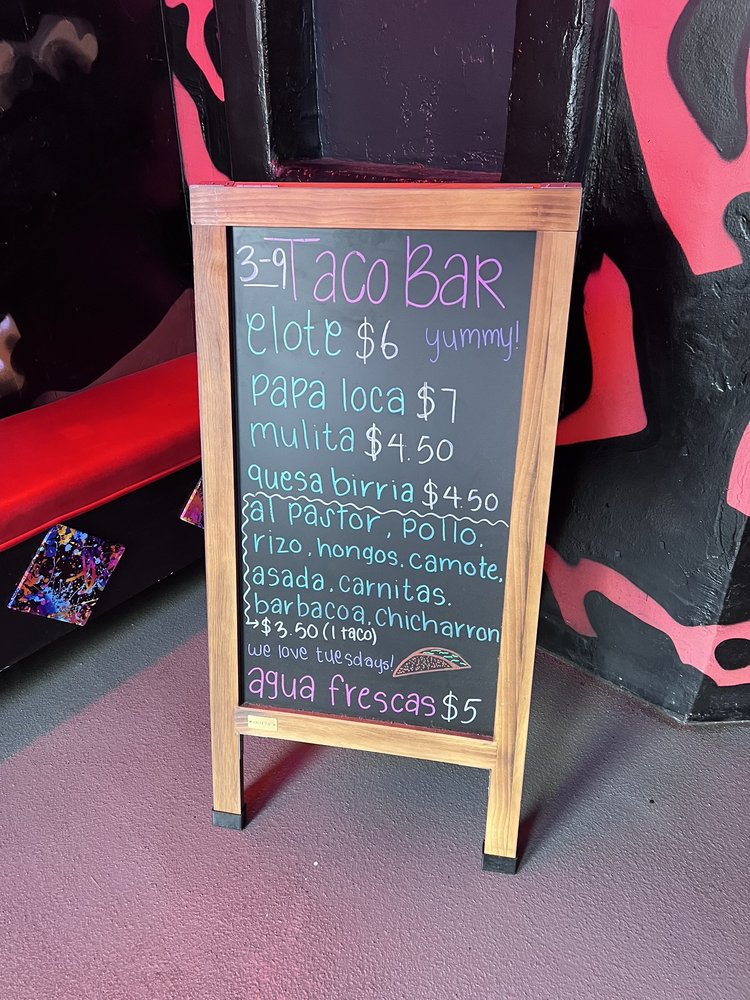 3-9 Taco Bar
elote $6 yummy!
papa loca $7
mulita $4.50
quesa birria $4.50
al pastor, pollo,
rizo, hongos, camote,
asada, carnitas,
barbacoa, chicharron
→ $3.50 (1 taco)
we love tuesdays!
agua frescas $5